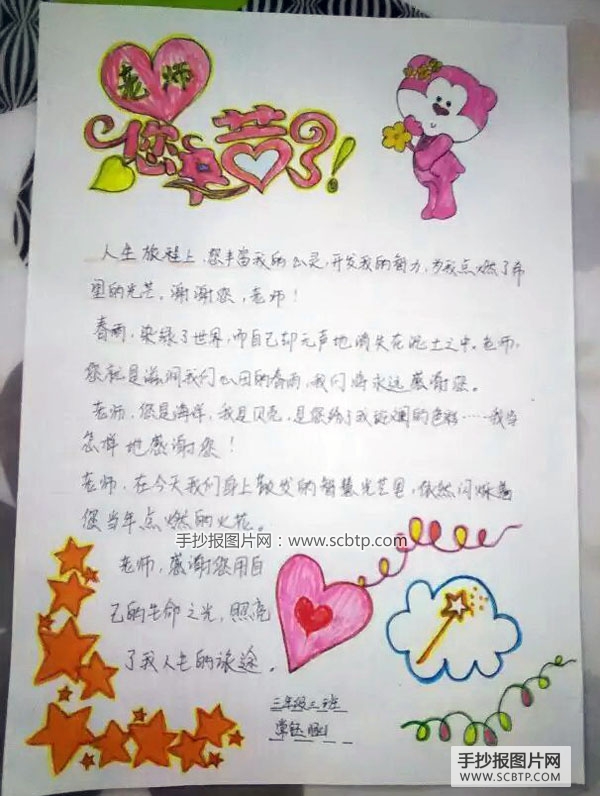 老师
您辛苦了!
人生旅程上,您丰富我的心灵,开发我的智力,为我点燃了希
望的光芒,谢谢您,老师!
春雨,染绿了世界,而自己却无声地消失在泥土之中。老师,
您就是滋润我们心田的春雨,我们将永远感谢您。
老师,您是海洋,我是贝壳,是您给了我斑斓的色彩……我当
怎样地感谢您!
老师,在今天我们身上散发的智慧光芒里,依然闪烁着
您当年点燃的火花。
手抄报图片网:www.scbtp.com
老师,感谢您用自
己的生命之光,照亮
了我人生的旅途。
三年级二班
手抄报图片网
WWW.SCBTP.COM